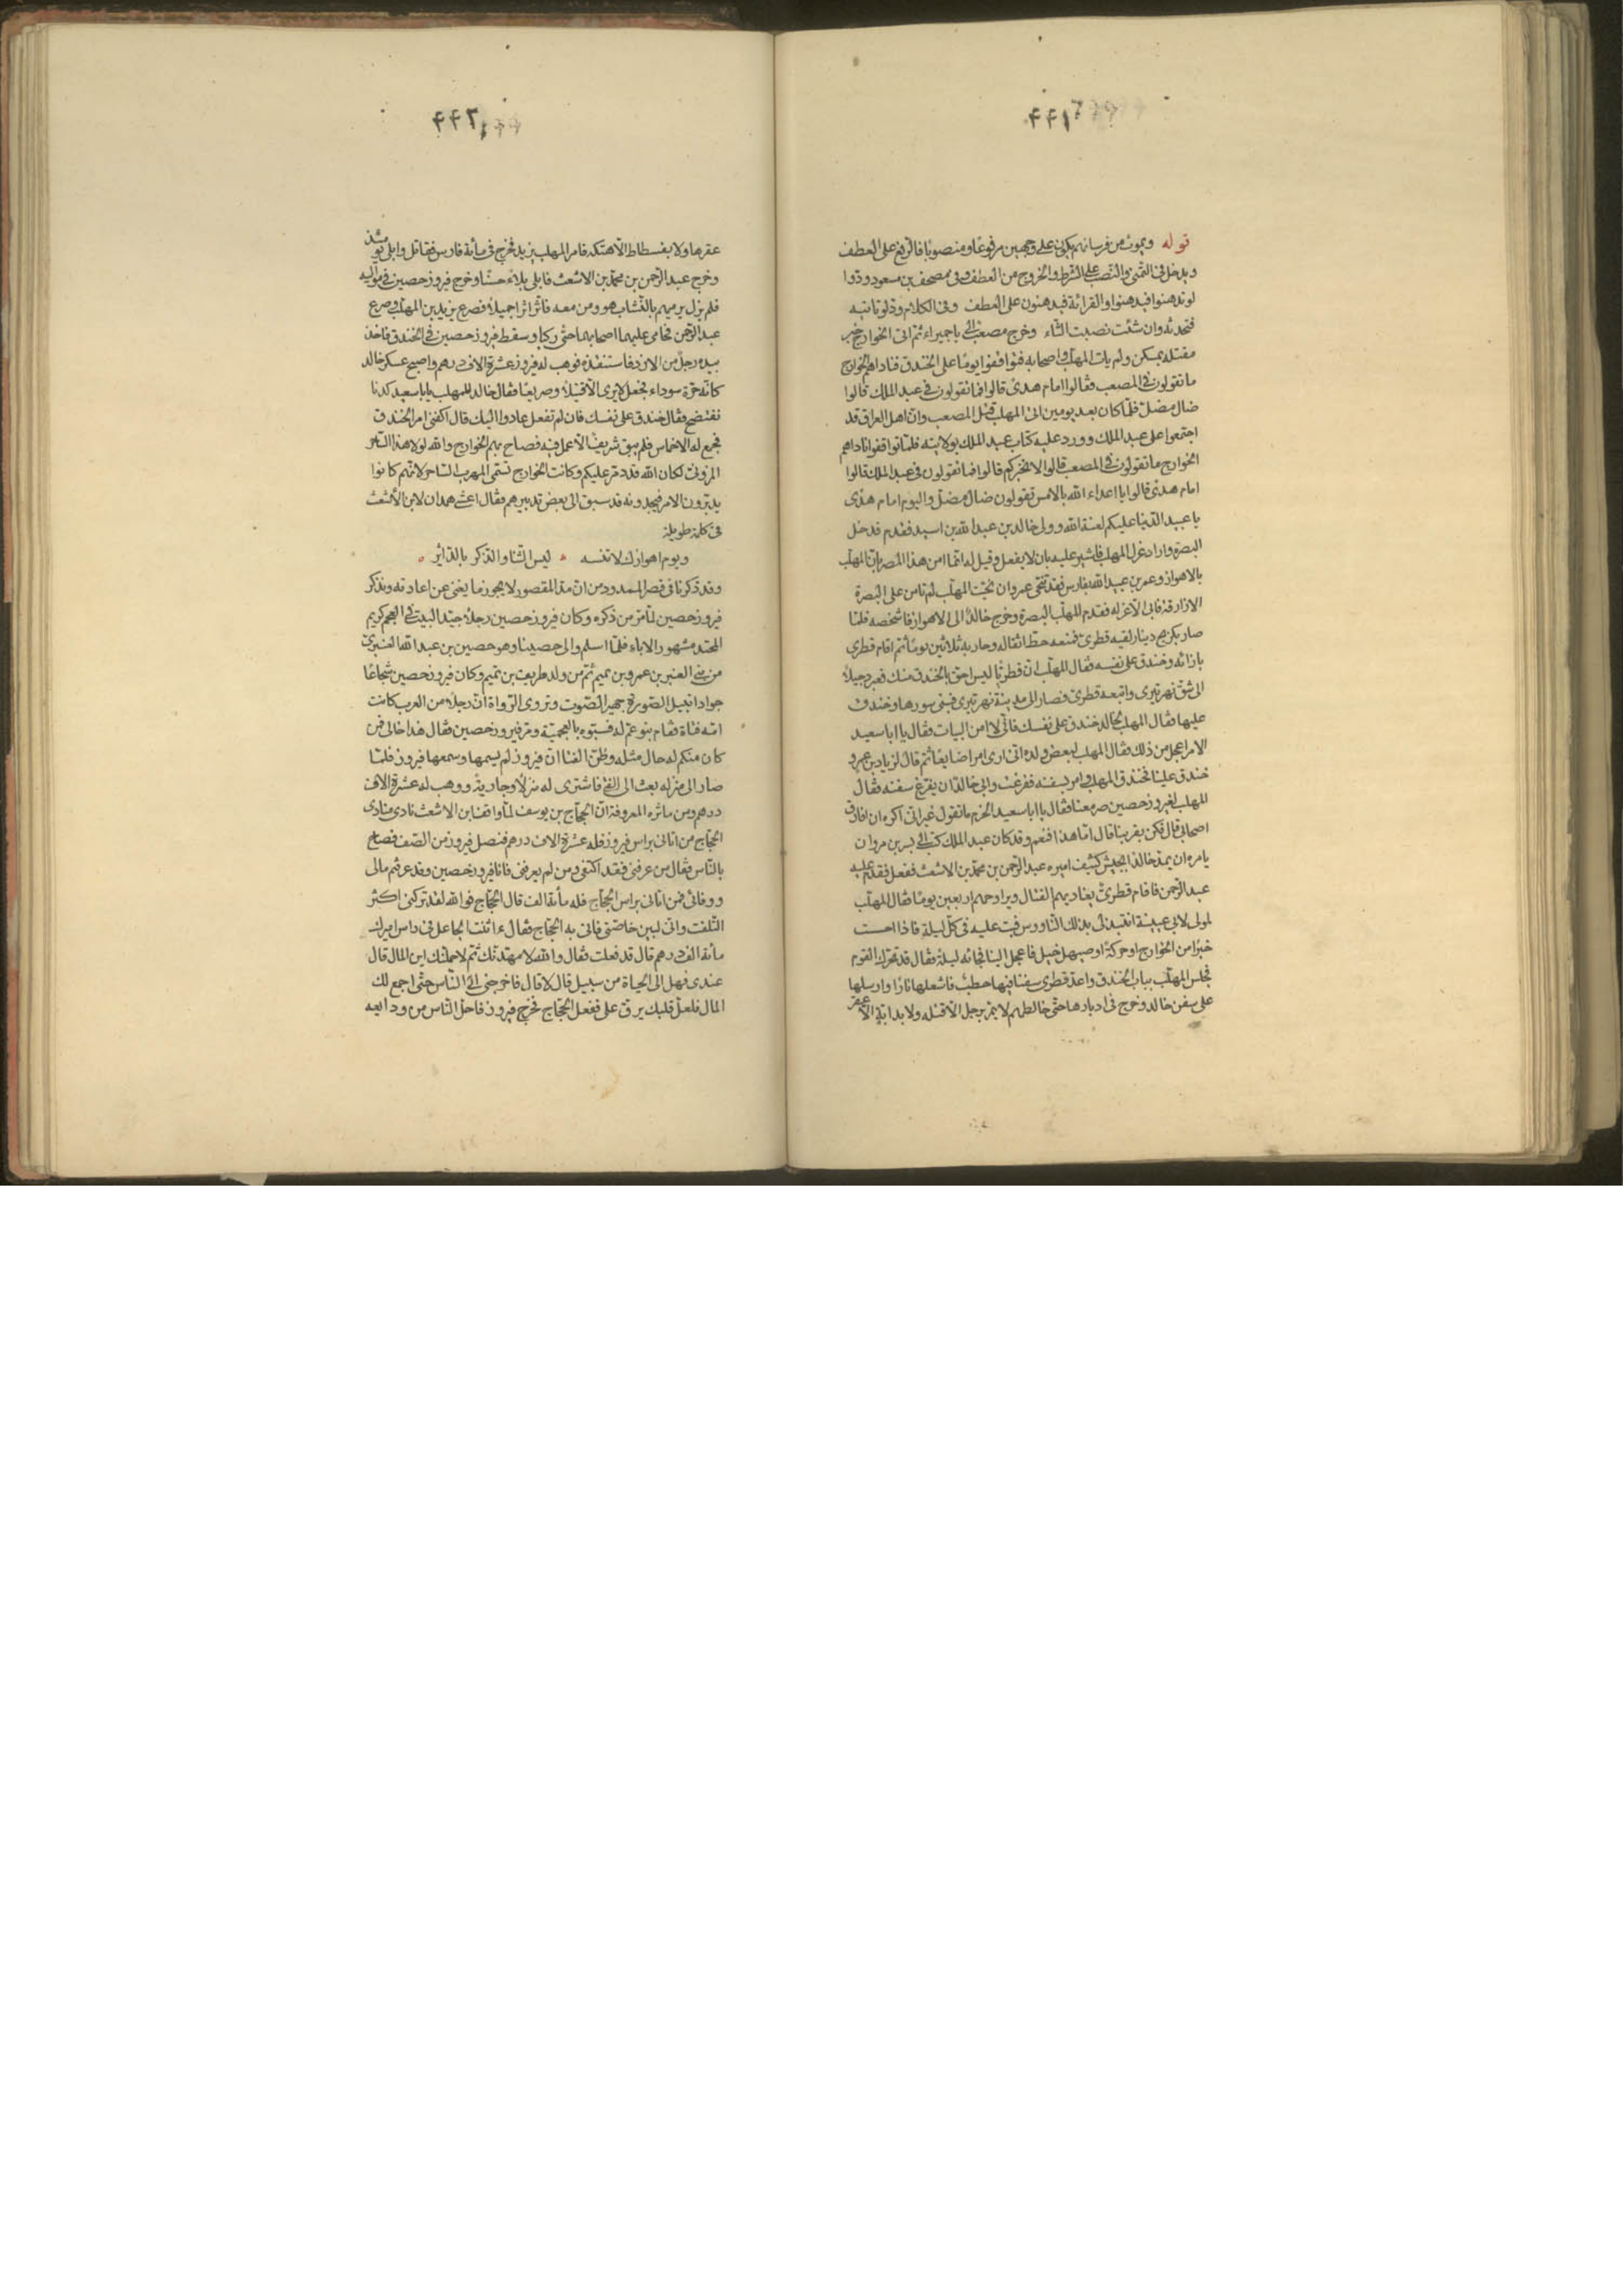 ۴۴۱
قوله ويموت من فرسانهم يكون على وجهين مرفوعًا ومنصوبًا فالرفع على العطف
ويدخل في التمنّي والنصب على الشرط والخروج من العطف وفي مصحف بن مسعود ودّوا
لو تدهنوا فيدهنوا والقرائة فيدهنون على العطف وفي الكلام ودّ لو تاتيه
فتحدثه وان شئت نصبت الثاء وخرج مصعب الى باجميراء ثم اتى الخوارج خبر
مقتله بمسكن ولم يات المهلّب واصحابه فتواقفوا يومًا على الخندق فناداهم الخوارج
ما تقولون في المصعب فقالوا امام هدى قالوا فما تقولون في عبد الملك قالوا
ضال مضلّ فلمّا كان بعد يومين اتى المهلب قتل المصعب وان اهل العراق قد
اجتمعوا على عبد الملك وورد عليه كتاب عبد الملك بولايته فلمّا تواقفوا ناداهم
الخوارج ما تقولون في المصعب قالوا لا نخبركم قالوا فما تقولون في عبد الملك قالوا
امام هدى قالوا يا اعداء الله بالامس تقولون ضال مضلّ واليوم امام هدى
يا عبيد الدنيا عليكم لعنة الله وولى خالد بن عبد الله بن اسيد فقدم فدخل
البصرة واراد عزل المهلب فاشير عليه بان لا يفعل وقيل له انما امن هذا المصر بان المهلّب
بالاهواز وعمر بن عبيد الله بفارس فقد تنحّى عمر وان نحّيت المهلّب لم تامن على البصرة
الازارقة فابى الّا عزله فقدم المهلّب البصرة وخرج خالد الى الاهواز فاشخصه فلمّا
صار بكربج دينار لقيه قطرى فمنعه حطّ اثقاله وحاربه ثلاثين يومًا ثم اقام قطرى
بازائه وخندق على نفسه فقال المهلّب ان قطريّا ليس احق بالخندق منك فعبر دجيلًا
الى شق نهر تيرى واتبعه قطرى فصار الى مدينة نهر تيرى فبنى سورها وخندق
عليها فقال المهلب لخالد خندق على نفسك فانّى لا امن البيات فقال يا ابا سعيد
الامر اعجل من ذلك فقال المهلب لبعض ولده انّى ارى امرًا ضايعًا ثم قال لزياد بن عمرو
خندق علينا فخندق المهلب وامر بسفنه ففرغت وابى خالد ان يفرّغ سفنه فقال
المهلب لفيروز حصين صر معنا فقال يا ابا سعيد الحزم ما تقول غير انى اكره ان افارق
اصحابى قال فكن بقربنا قال امّا هذا فنعم وقد كان عبد الملك كتب الى بشر بن مروان
يامره ان يمدّ خالدًا بجيش كثيف اميره عبد الرّحمن بن محمّد بن الاشعث ففعل فقدم عليه
عبد الرّحمن فاقام قطرىّ يغاديهم القتال ويراوحهم اربعين يومًا فقال المهلّب
لمولى لابى عيينة انتبذ الى بذلك النّاووس فبت عليه في كلّ ليلة فاذا احست
خبرًا من الخوارج او حركة او صهيل خيل فاعجل الينا فجائه ليلة فقال قد تحرّك القوم
فجلس المهلّب بباب الخندق واعدّ قطرى سفنًا فيها حطب فاشعلها نارًا وارسلها
على سفن خالد وخرج في ادبارها حتّى خالطهم لا يمرّ برجل الّا قتله ولا بدابّة الّا عقر
۴۴۲
عقرها ولا بفسطاط الّا هتكه فامر المهلب يزيد فخرج في مأئة فارس فقاتل وابلى يومئذ
وخرج عبد الرّحمن بن محمّد بن الاشعث فابلى بلاءً حسنًا وخرج فيروز حصين في مواليه
فلم يزل يرميهم بالنّشاب هو ومن معه فاثّر اثرًا جميلًا فصرع يزيد بن المهلّب وصرع
عبد الرّحمن فحامى عليهما اصحابهما حتّى ركبا وسقط فيروز حصين في الخندق فاخذ
بيده رجل من الازد فاستنقذه فوهب له فيروز عشرة الاف درهم واصبح عسكر خالد
كانّه حرّة سوداء فجعل لا يرى الّا قتيلًا وصريعًا فقال خالد للمهلب يا ابا سعيد كدنا
نفتضح فقال خندق على نفسك فان لم تفعل عادوا اليك قال اكفنى امر الخندق
فجمع له الاخماس فلم يبق شريف الّا عمل فيه فصاح بهم الخوارج والله لولا هذا الساحر
المزونى لكان الله قد دمّر عليكم وكانت الخوارج تسمّى المهلّب السّاحر لانّهم كانوا
يدبّرون الامر فيجدونه قد سبق الى نقض تدبيرهم وقال اعشى همدان لابن الأشعث
في كلمة طويلة
ويوم اهوازك لا تنسه ۰ ليس الثّنا والذكر بالدّائر ۰
وقد ذكرنا في قصر الممدود من انّ مدّ المقصور لا يجوز ما يغنى عن اعادته ونذكر
فيروز حصين لما مرّ من ذكره وكان فيروز حصين رجلًا جيّد البيت في العجم كريم
المحتد مشهور الاباء فلمّا اسلم والى حصينًا وهو حصين بن عبد الله العنبرىّ
من بنى العنبر بن عمرو بن تميم ثم من ولد طريف بن تميم وكان فيروز حصين شجاعًا
جوادًا نبيل الصّورة جهير الصّوت وتروى الرّواة ان رجلًا من العرب كانت
امّه فتاة فقام بنو عمّ له فسبّوه بالعجميّة ومرّ فيروز حصين فقال هذا خالى فمن
كان منكم له خال مثله وظنّ الفتى ان فيروز لم يسمعها وسمعها فيروز فلمّا
صار الى منزله بعث الى الفتى فاشترى له منزلًا وجارية ووهب له عشرة الاف
درهم ومن ماثره المعروفة انّ الحجّاج بن يوسف لمّا واقف ابن الاشعث نادى منادى
الحجّاج من اتانى براس فيروز فله عشرة الاف درهم فنصل فيروز من الصّف فصاح
بالنّاس فقال من عرفنى فقد اكتفى ومن لم يعرفنى فانا فيروز حصين وقد عرفتم مالى
ووفائى فمن اتانى براس الحجّاج فله مأئة الف قال الحجّاج فوالله لقد تركنى اكثر
التلفّت وانّى لبين خاصّتى فاتى به الحجّاج فقال ءانت الجاعل في راس اميرك
مأئة الف درهم قال قد فعلت فقال والله لامهّدنّك ثم لاحملنّك اين المال قال
عندى فهل الى الحياة من سبيل قال لا قال فاخرجنى الى النّاس حتّى اجمع لك
المال فلعلّ قلبك يرقّ على ففعل الحجّاج فخرج فيروز فاحلّ النّاس من ودايعه